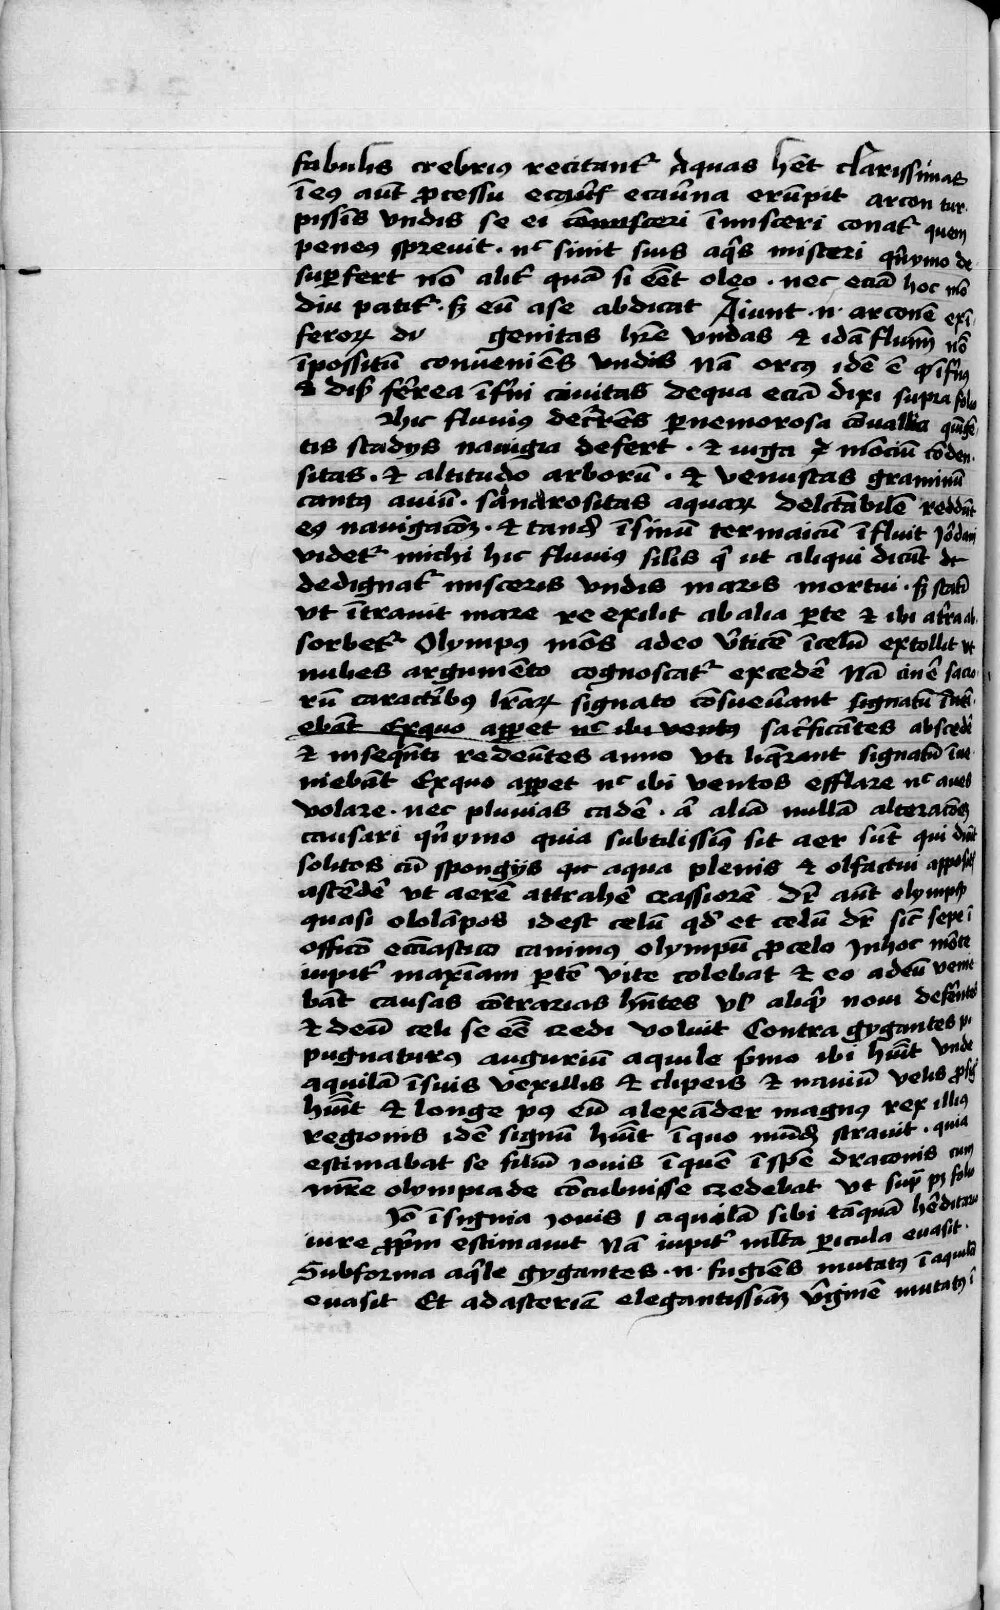 fabulis crebriꝰ recitantᷣ Aquas hēt clarissimas
ī eꝰ aūt ꝓcessu ecauna erūpit arcon tur
pissīs vndis se ei īmisceri conatᷣ quem
peneꝰ spreuit · nᶜ sinit suis aq̄s misceri qn̄ymo de
suꝑfert nō alit̄ quā si eēt oleo · nec eciā hoc mō
diu patitᷣ · sꝫ eū a se abdicat Aiunt · n · arconē exī
feroꝝ di genitas hr̄e vndas et idā fluuiū nō
īpossitū conueniēs vndis Nā orcꝰ idē ē qd̄ īfn̄ꝰ
et dis fērea īfn̄i ciuitas de qua eciā dixi supra folio
Hic fluuiꝰ decrēs ꝑ nemorosa cōuallia quīgē
tis stadys nauigia defert · et iuga mōciū cōden
sitas · et altitudo arborū · et venustas graminū
cantꝰ auiū · aquaꝝ delectabilē reddūt
eꝰ nauigacōꝫ · et tandē ī sinū termaicū īfluit Jordani
videtᷣ michi hic fluuiꝰ silis qī ut aliqui dicūt dt
dedignatᷣ misceris vndis maris mortui · sꝫ statī
vt ītrauit mare re exilit ab alia ꝑte et ibi a tr̄a ab
sorbetᷣ Olympꝰ mōs adeo v̄ticē ī celū extollit vt
nubes argumēto cognoscatᷣ excedē Nā cinē sacro
rū caractibꝰ lr̄aꝝ signato cōsueuant signatū īuēi
ebāt Ex quo apꝑet nᶜ ibi ventꝰ sac̄ficātes abscedē
et insequēti redeūtes anno vti liq̄rant signatū īue
niebāt Ex quo apꝑet nᶜ ibi ventos efflare nᶜ aues
volare · nec pluuias cadē · ā aliā nullā alteracōeꝫ
causari qn̄ymo quia subtilissiꝰ sit aer sūt qui dicūt
solitos cū spongijs aqua plenis et olfactui appositis
ascēdē vt aerē attrahē crassiorē Dr̄ aūt olympꝰ
quasi ololāpos idest celū qd̄ et celū dr̄ sic̄ sepe ī
officō ecclīastico canimus olympū ꝓ celo In hoc mōte
iupitᷣ maxīam ꝑtē vite colebat et eo ad eū venie
bāt causas cōtrarias hn̄tes vl̄ aliq̄ noui defēntes
et deū celi se eē credi voluit Contra gygantes ꝓ
pugnaturꝰ auguriū aquile p̄mo ibi huīt vnde
aquilā ī suis vexillis et clipeis et nauiū velis
huīt et longe pꝰ eū alexāder magnꝰ rex illiꝰ
regionis idē signū huīt ī quo mūdū strauit · quia
estimabat se filiū iouis ī quē ī spē draconis cum
mr̄e olympiade cōcubuisse credebat vt supꝰ folio
Jō īsignia iouis aquilā sibi tāquā hēditario
iure ꝓpriū estimauit Nā iupitᷣ ml̄ta ꝑicula euasit ·
Sub forma aq̄le gygantes · n · fugiēs mutatꝰ ī aquilā
euasit Et ad asteriē elegantissimā v̄ginē mutatꝰ ī